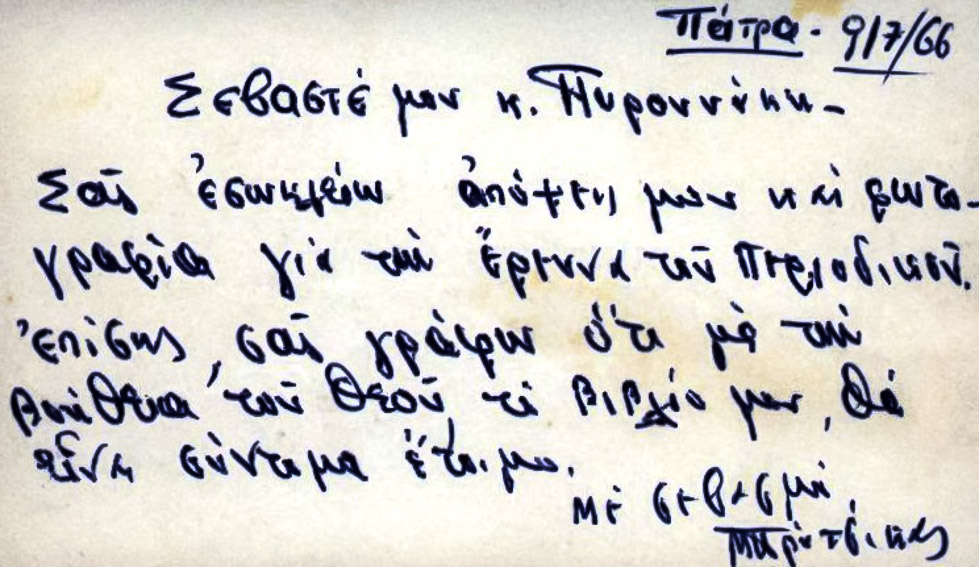 Πάτρα - 9/7/66
Σεβαστέ μου κ. Πυρουνάκη -
Σᾶς ἐσωκλείω ἀπόψεις μου καὶ φωτο-
γραφία γιὰ τὴν ἔρευνα τοῦ Περιοδικοῦ.
Ἐπίσης, σᾶς γράφω ὅτι μὲ τὴν
βοήθεια τοῦ Θεοῦ, τὸ βιβλίο μου, θὰ
εἶναι σύντομα ἕτοιμο.
Μὲ σεβασμό,